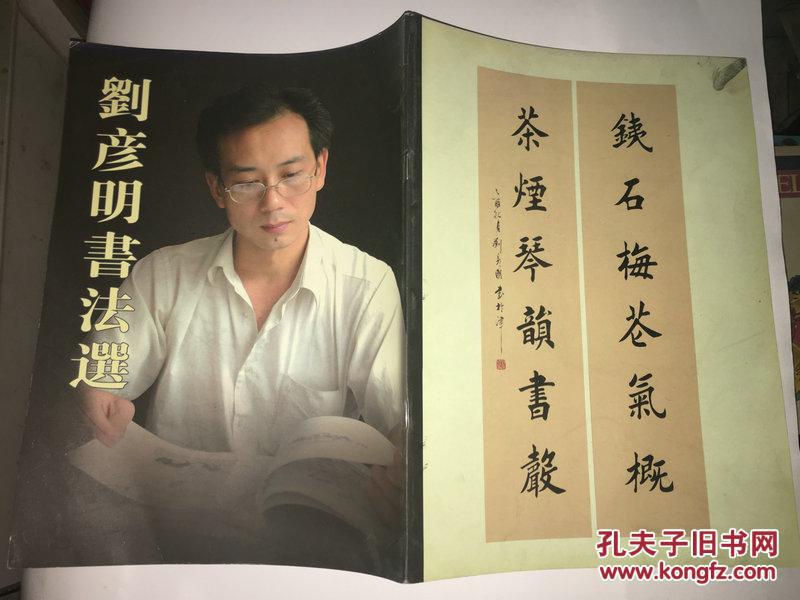 劉彦明書法選
鐵石梅花氣概
茶煙琴韻書聲
孔夫子旧书网
www.kongfz.com